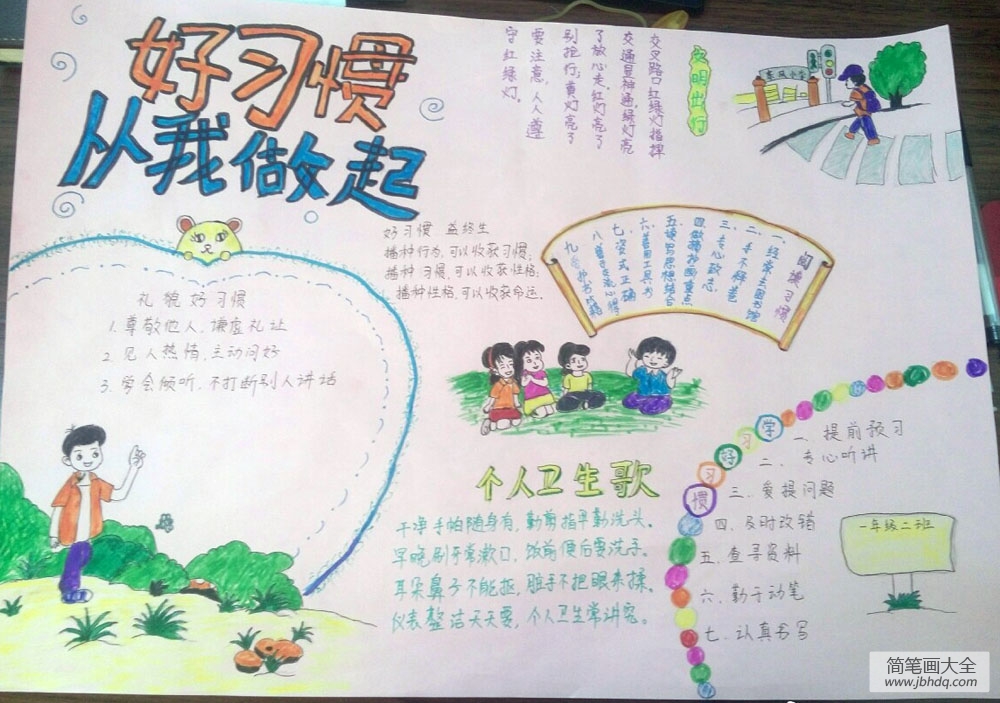 好习惯
从我做起
文明出行
交叉路口红绿灯指挥
交通显神通绿灯亮
了放心走红灯亮了
别抢行;黄灯亮了
要注意,人人遵
守红绿灯。
东风小学
好习惯 益终生
播种行为,可以收获习惯;
播种习惯,可以收获性格;
播种性格,可以收获命运。
阅读习惯
一、经常去图书馆
二、手不释卷
三、专心致志
四、做摘抄画重点
五、读写思想结合
六、善用工具书
七、姿式正确
八、
九、
礼貌好习惯
1.尊敬他人,谦虚礼让
2.见人热情,主动问好
3.学会倾听,不打断别人讲话
个人卫生歌
干净手帕随身有,勤剪指甲勤洗头。
早晚刷牙常漱口,饭前便后要洗手。
耳朵鼻子不能抠,脏手不把眼来揉。
仪表整洁天天要,个人卫生常讲究。
学习好习惯
一、提前预习
二、专心听讲
三、爱提问题
四、及时改错
五、查寻资料
六、勤于动笔
七、认真书写
一年级二班
简笔画大全
www.jbhdq.com